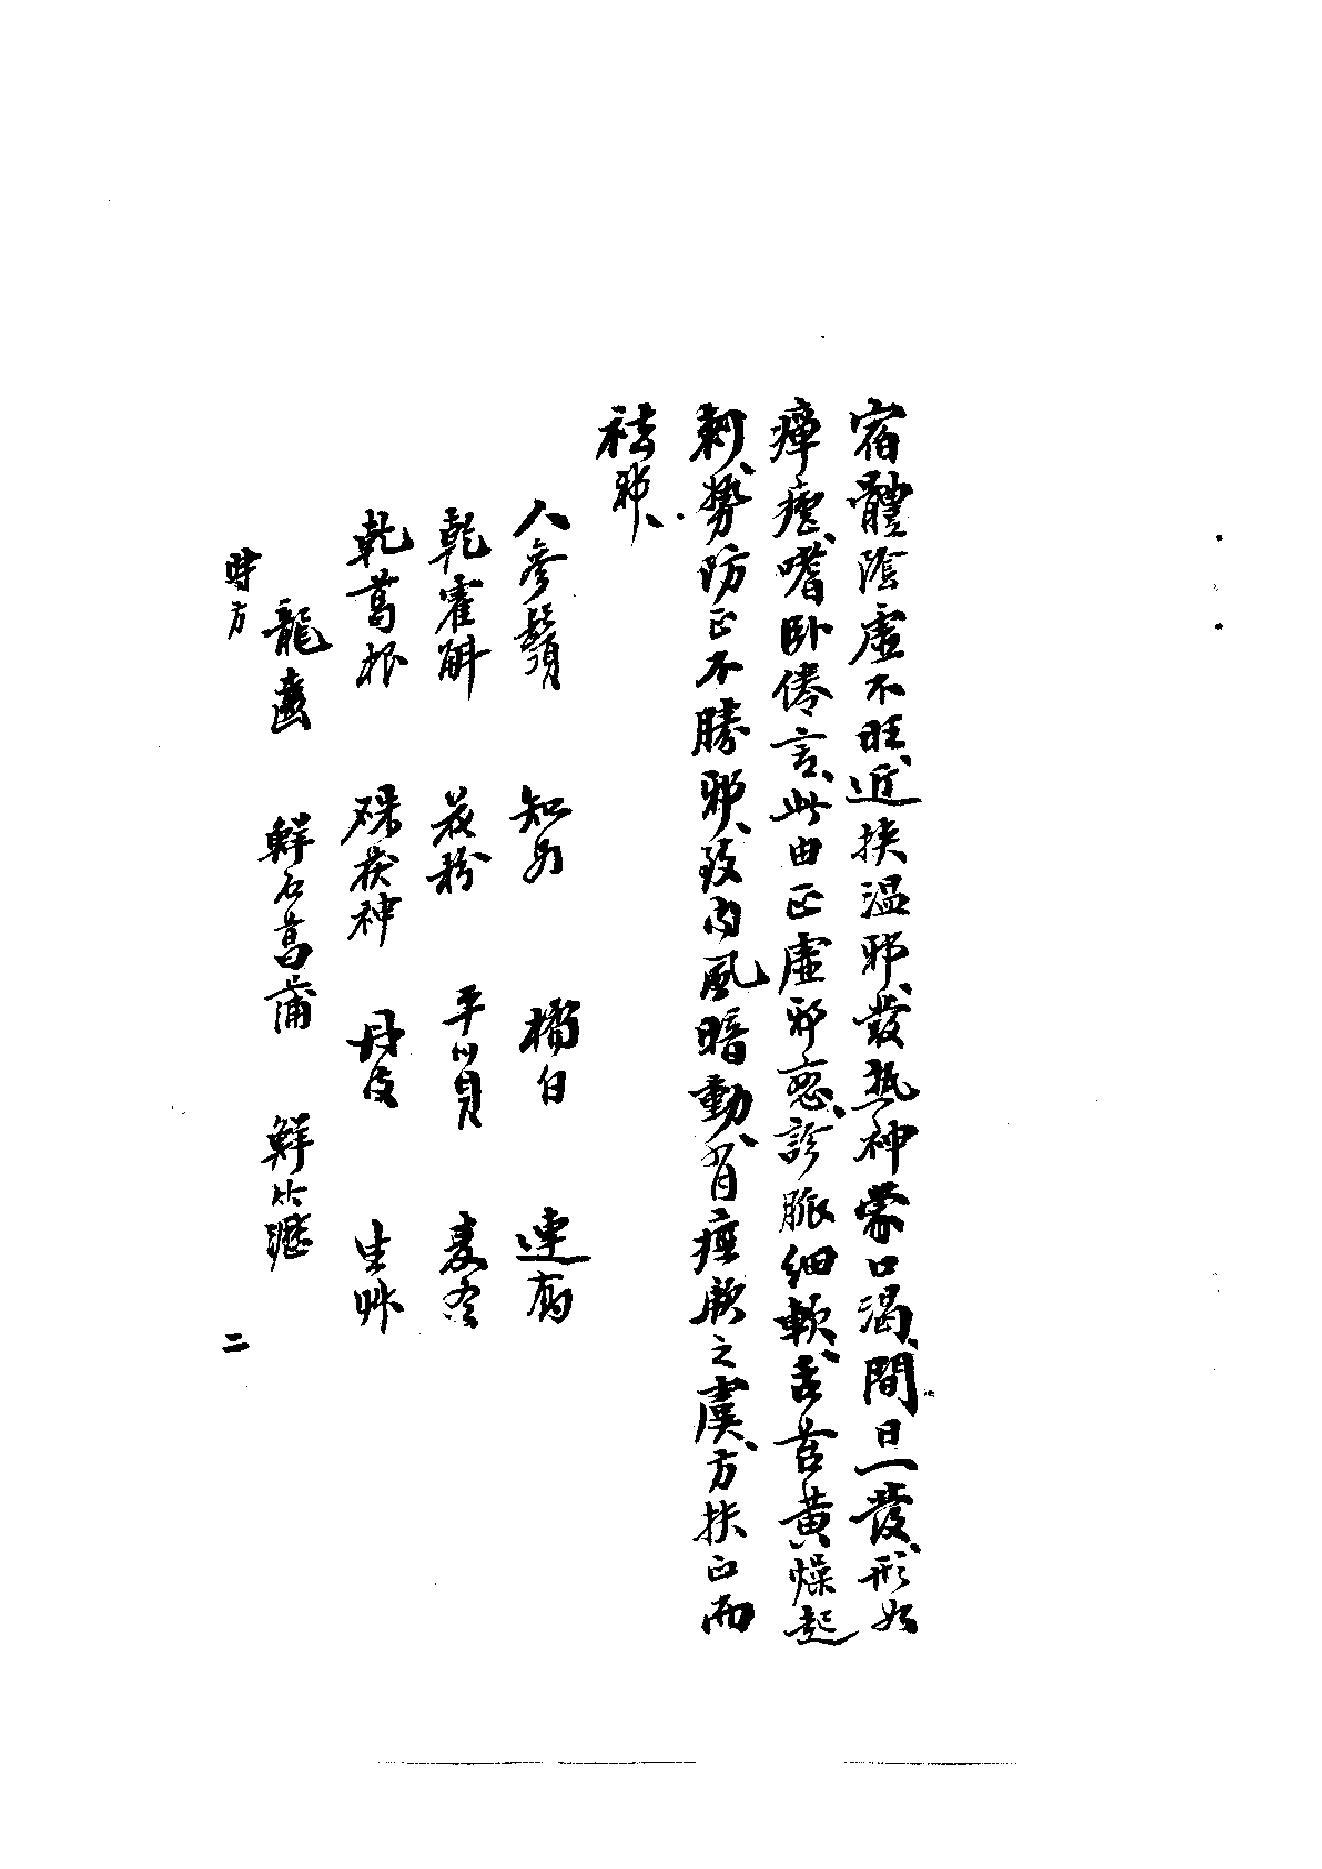 宿體陰虛不旺、近挾温邪、發热神蒙口渴、間日一發、形如
瘴瘧、嗜卧倦言、此由正虛邪恋、診脈細軟、舌苔黄燥起
刺、勢防正不勝邪、致内風暗動、有痙厥之虞、方扶正而
袪邪、
人參鬚 知母 橘白 連翹
乾霍斛 花粉 平川貝 麦冬
乾葛根 硃茯神 丹皮 生艸
龍齒 鮮石菖蒲 鮮竹瀝
時方 二